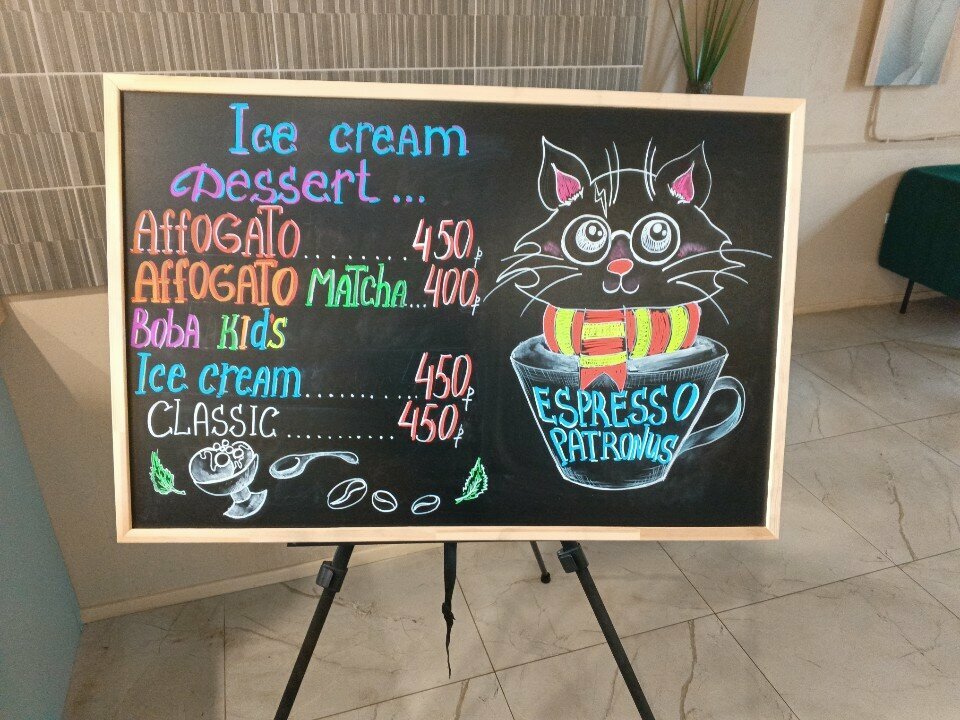 Ice cream
Dessert...
Affogato........450₽
Affogato Matcha...400₽
Boba Kids
Ice cream............450₽
Classic...........450₽
Espresso
Patronus